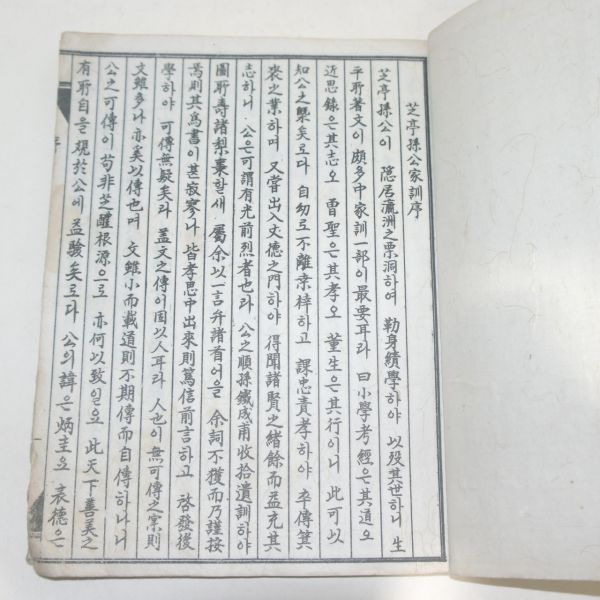 芝亭孫公家訓序
芝亭孫公이 隱居瀛洲之栗洞하여 勅身績學하야 以歿其世하니 生
平所著文이 頗多中家訓一部이 最要耳라 曰小學考經은其道오
近思錄은其志오 曾聖은其孝오 董生은其行이니 此可以
知公之槩矣로다 自幼로不離桑梓하고 課忠責孝하야 卒傳箕
裘之業하며 又嘗出入文德之門하야 得聞諸賢之緖餘而益充其
志하니 公은可謂有光前烈者也라 公之順孫鐵成甫收拾遺訓하야
圖所壽諸梨棗할새 屬余以一言弁諸首어을 余詞不獲而乃謹按
焉則其爲書이甚寂寥나 皆孝思中出來則篤信前言하고 啓發後
學하야 可傳無疑矣라 盖文之傳이因以人耳라 人也이無可傳之案則
文雖多나亦奚以傳也며 文雖小而載道則不期傳而自傳하나니
公之可傳이苟非芝醴根源으로 亦何以致일요 此天下善美之
有所自을 覡於公에 益驗矣로다 公의諱은炳圭요 表德은